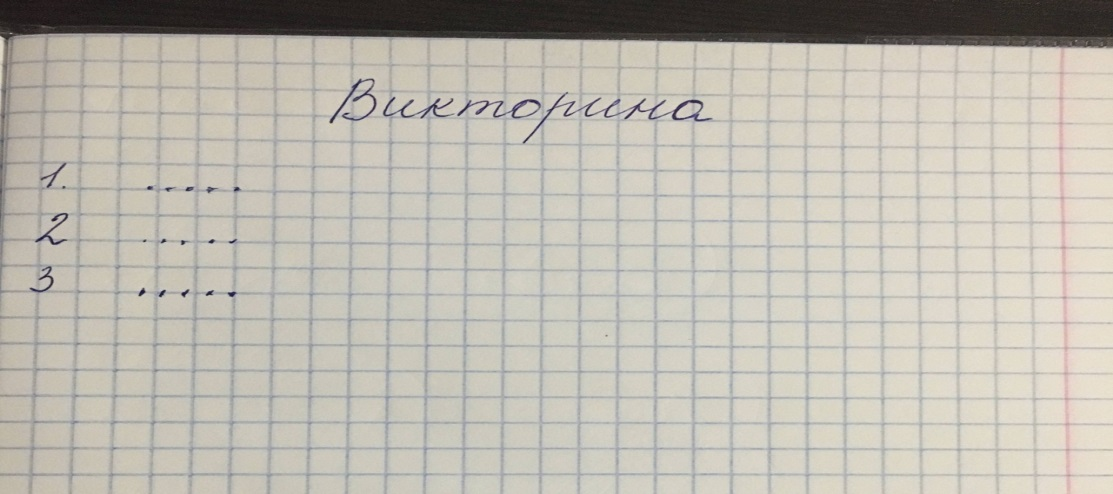 Викторина
1. .....
2 .....
3 .....